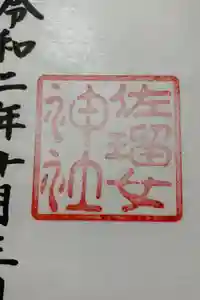 佐瑠女
神社
令和二年十月三日